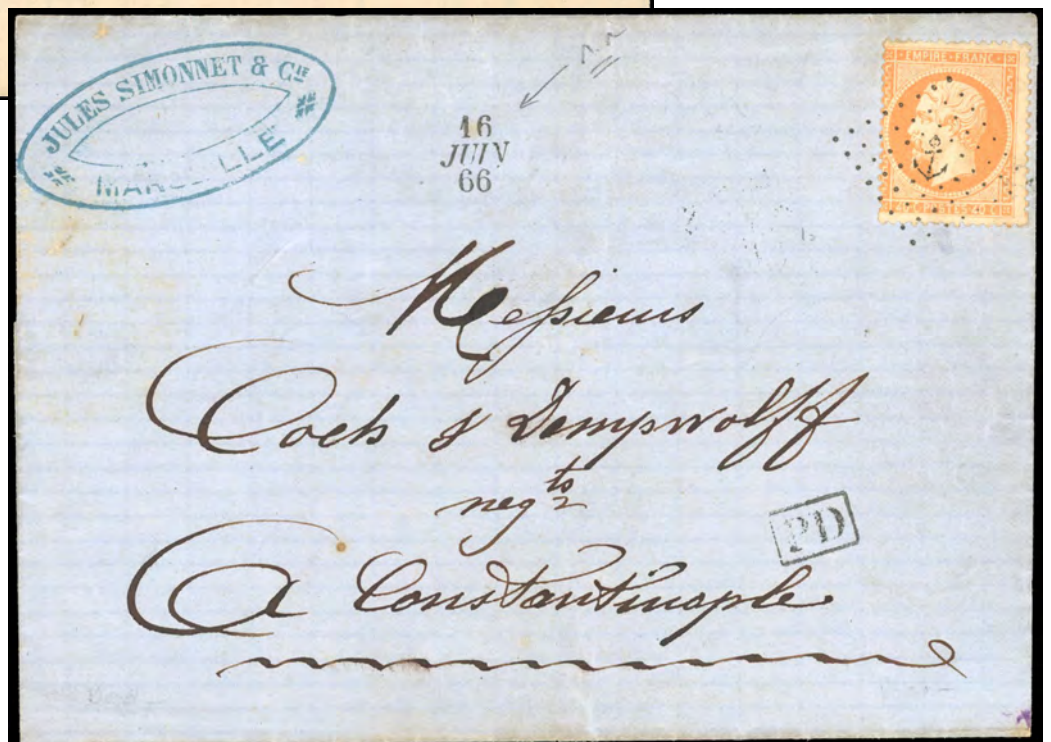 JULES SIMONNET & Cie
MARSEILLE
16
JUIN
66
EMPIRE FRANC
POSTES 40 C
Messieurs
Coeb & Dempwolff
negts
PD
A Constantinople